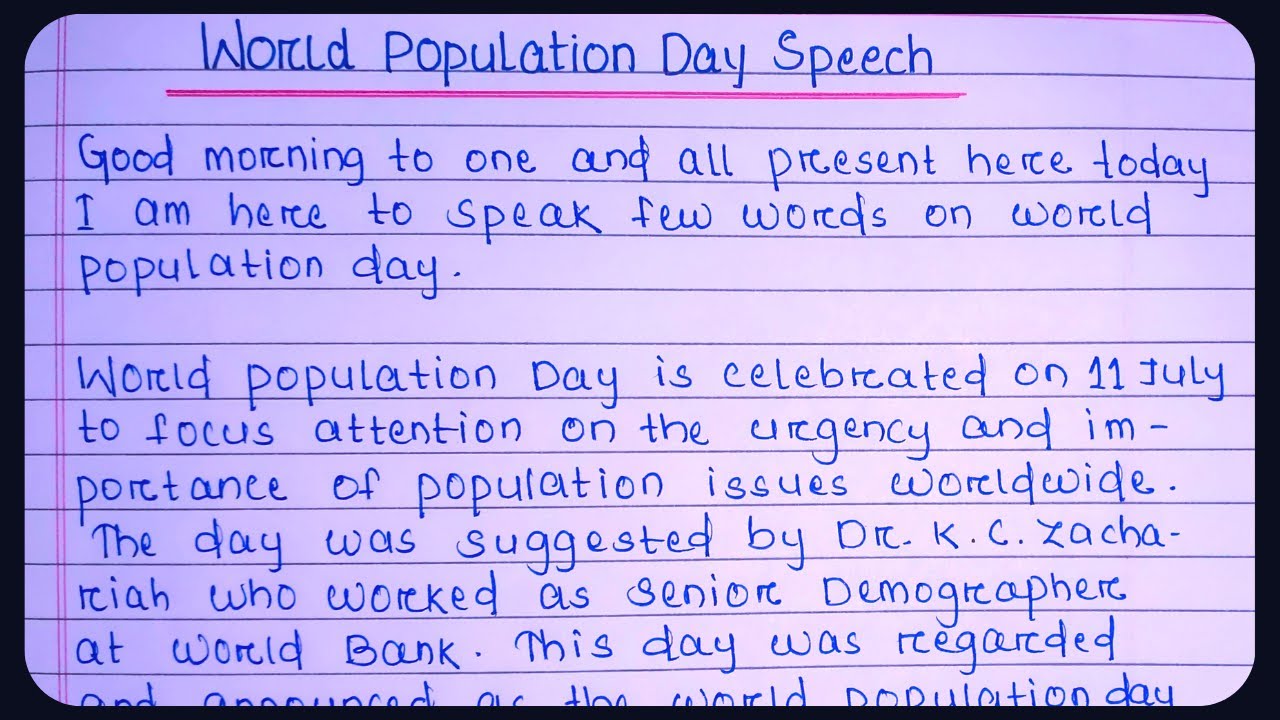 World Population Day Speech
Good morning to one and all present here today
I am here to speak few words on world
population day.
World population Day is celebrated on 11 July
to focus attention on the urgency and im-
portance of population issues worldwide.
The day was suggested by Dr. K. C. Zacha-
riah who worked as senior Demographer
at World Bank. This day was regarded
and announced as the world population day